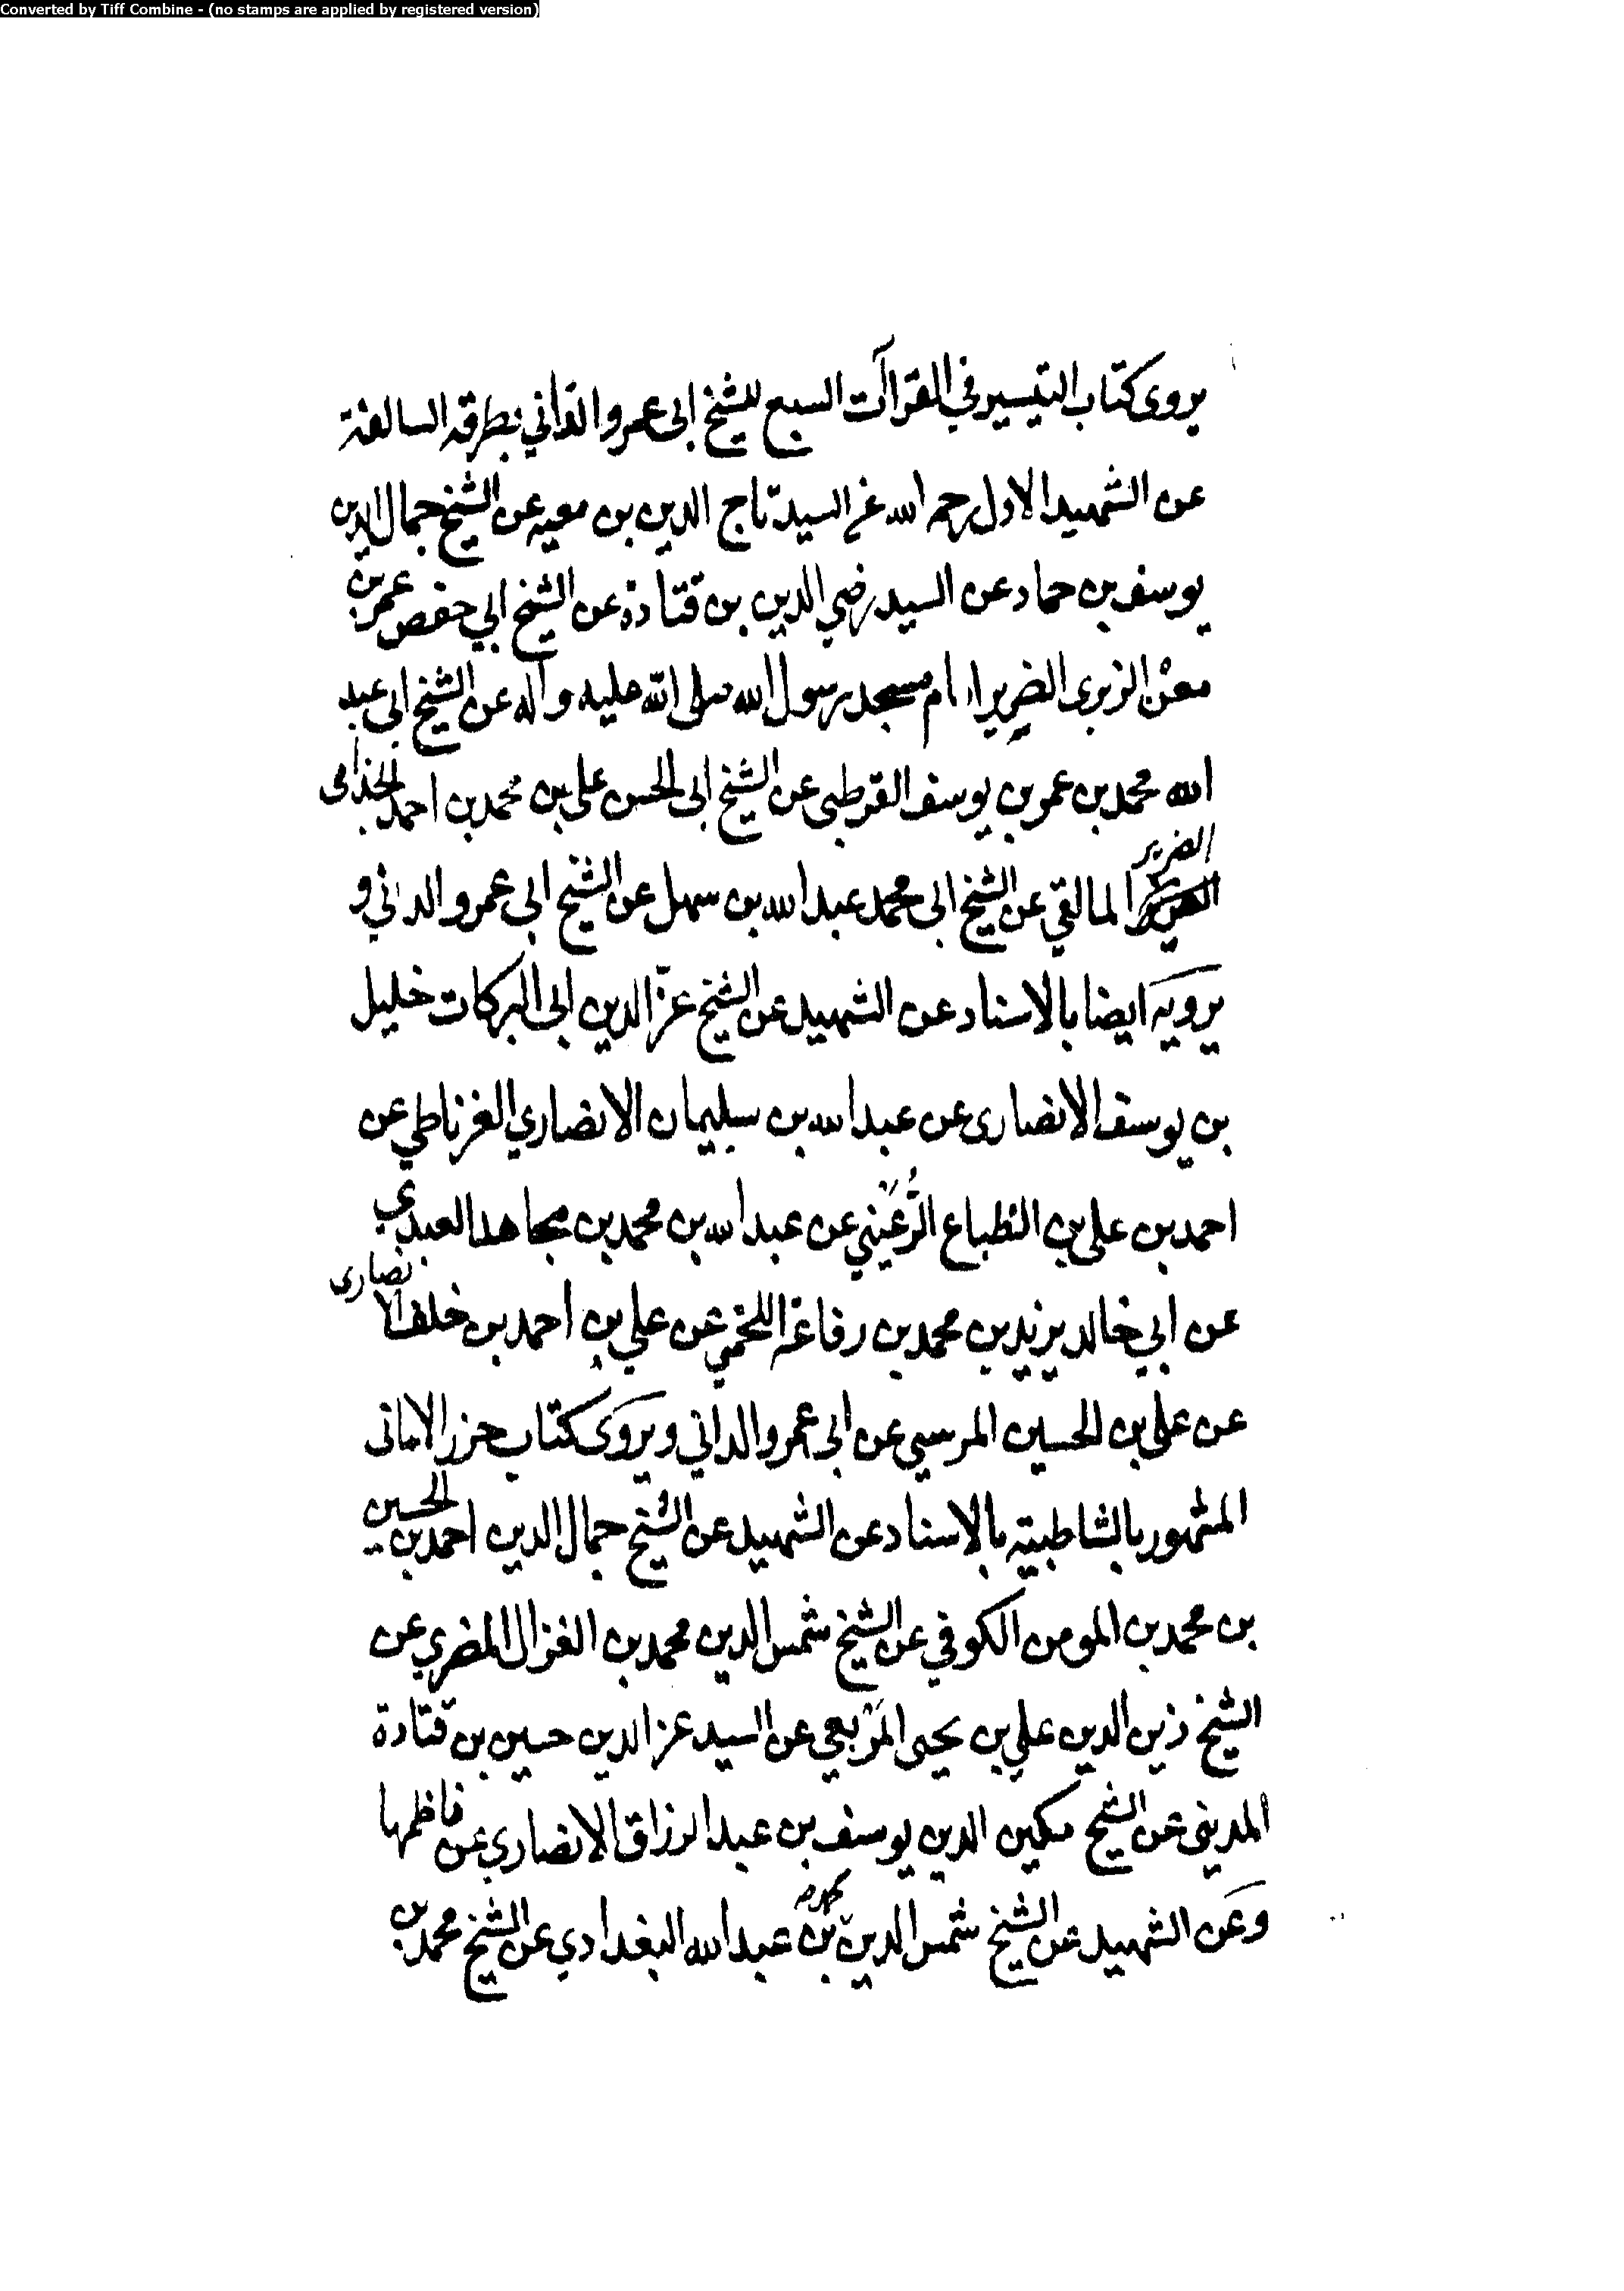 Converted by Tiff Combine - (no stamps are applied by registered version)
يروى كتاب التيسير في القراآت السبع للشيخ ابى عمرو الداني بطرقه السالفة
عن الشهيد الاول رحمه الله عن السيد تاج الدين بن معيه عن الشيخ جمال الدين
يوسف بن حماد عن السيد رضي الدين بن قتادة عن الشيخ ابي حفص عمر بن
معن الزبرى الضرير امام مسجد رسول الله صلى الله عليه وآله عن الشيخ ابى عبد
الله محمد بن عمر بن يوسف القرطبى عن الشيخ ابى الحسن على بن محمد بن احمد الجذامى
الضرير المالقي عن الشيخ ابى محمد عبد الله بن سهل عن الشيخ ابى عمرو الداني و
يرويه ايضا بالاسناد عن الشهيد عن الشيخ عز الدين ابى البركات خليل
بن يوسف الانصارى عن عبد الله بن سليمان الانصاري الغرناطي عن
احمد بن على بن الطباع الرُّعيني عن عبد الله بن محمد بن مجاهد العبدي
عن ابي خالد يزيد بن محمد بن رفاعة اللخمي عن علي بن احمد بن خلف الانصارى
عن على بن الحسين المرسي عن ابى عمرو الداني ويروى كتاب حرز الامانى
المشهور بالشاطبية بالاسناد عن الشهيد عن الشيخ جمال الدين احمد بن الحسين
بن محمد بن المومن الكوفي عن الشيخ شمس الدين محمد بن الغزال المضري عن
الشيخ زين الدين علي بن يحيى المربعي عن السيد عز الدين حسين بن قتادة
المدينى عن الشيخ مكين الدين يوسف بن عبد الرزاق الانصاري عن ناظمها
وعن الشهيد عن الشيخ شمس الدين محمد بن عبد الله البغدادي عن الشيخ محمد بن